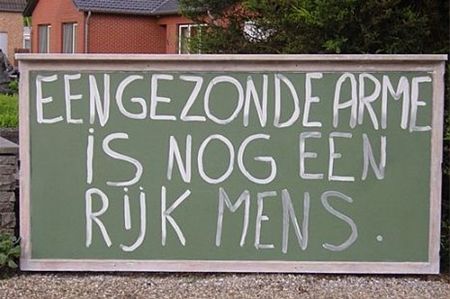 EEN GEZONDE ARME
IS NOG EEN
RIJK MENS.